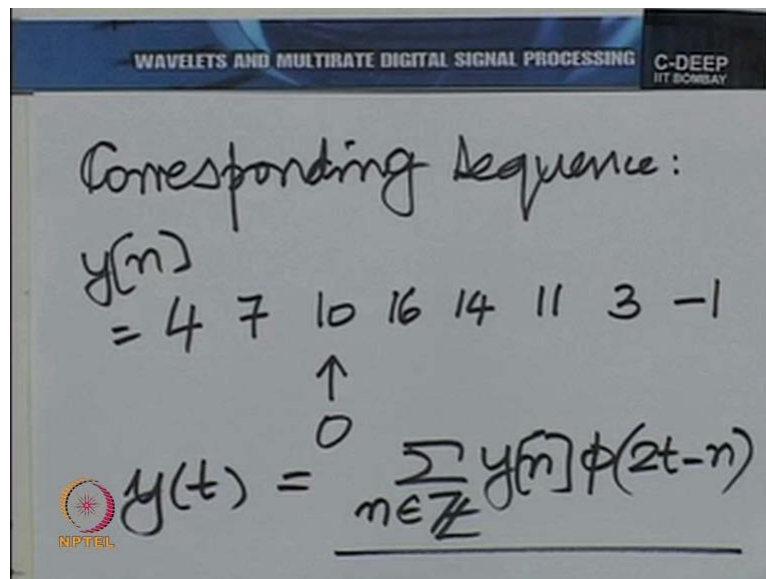 WAVELETS AND MULTIRATE DIGITAL SIGNAL PROCESSING
C-DEEP
IIT BOMBAY
Corresponding Sequence:
y[n]
= 4 7 10 16 14 11 3 -1
↑
0
y(t) = Σ y[n] φ(2t-n)
n∈ℤ
NPTEL